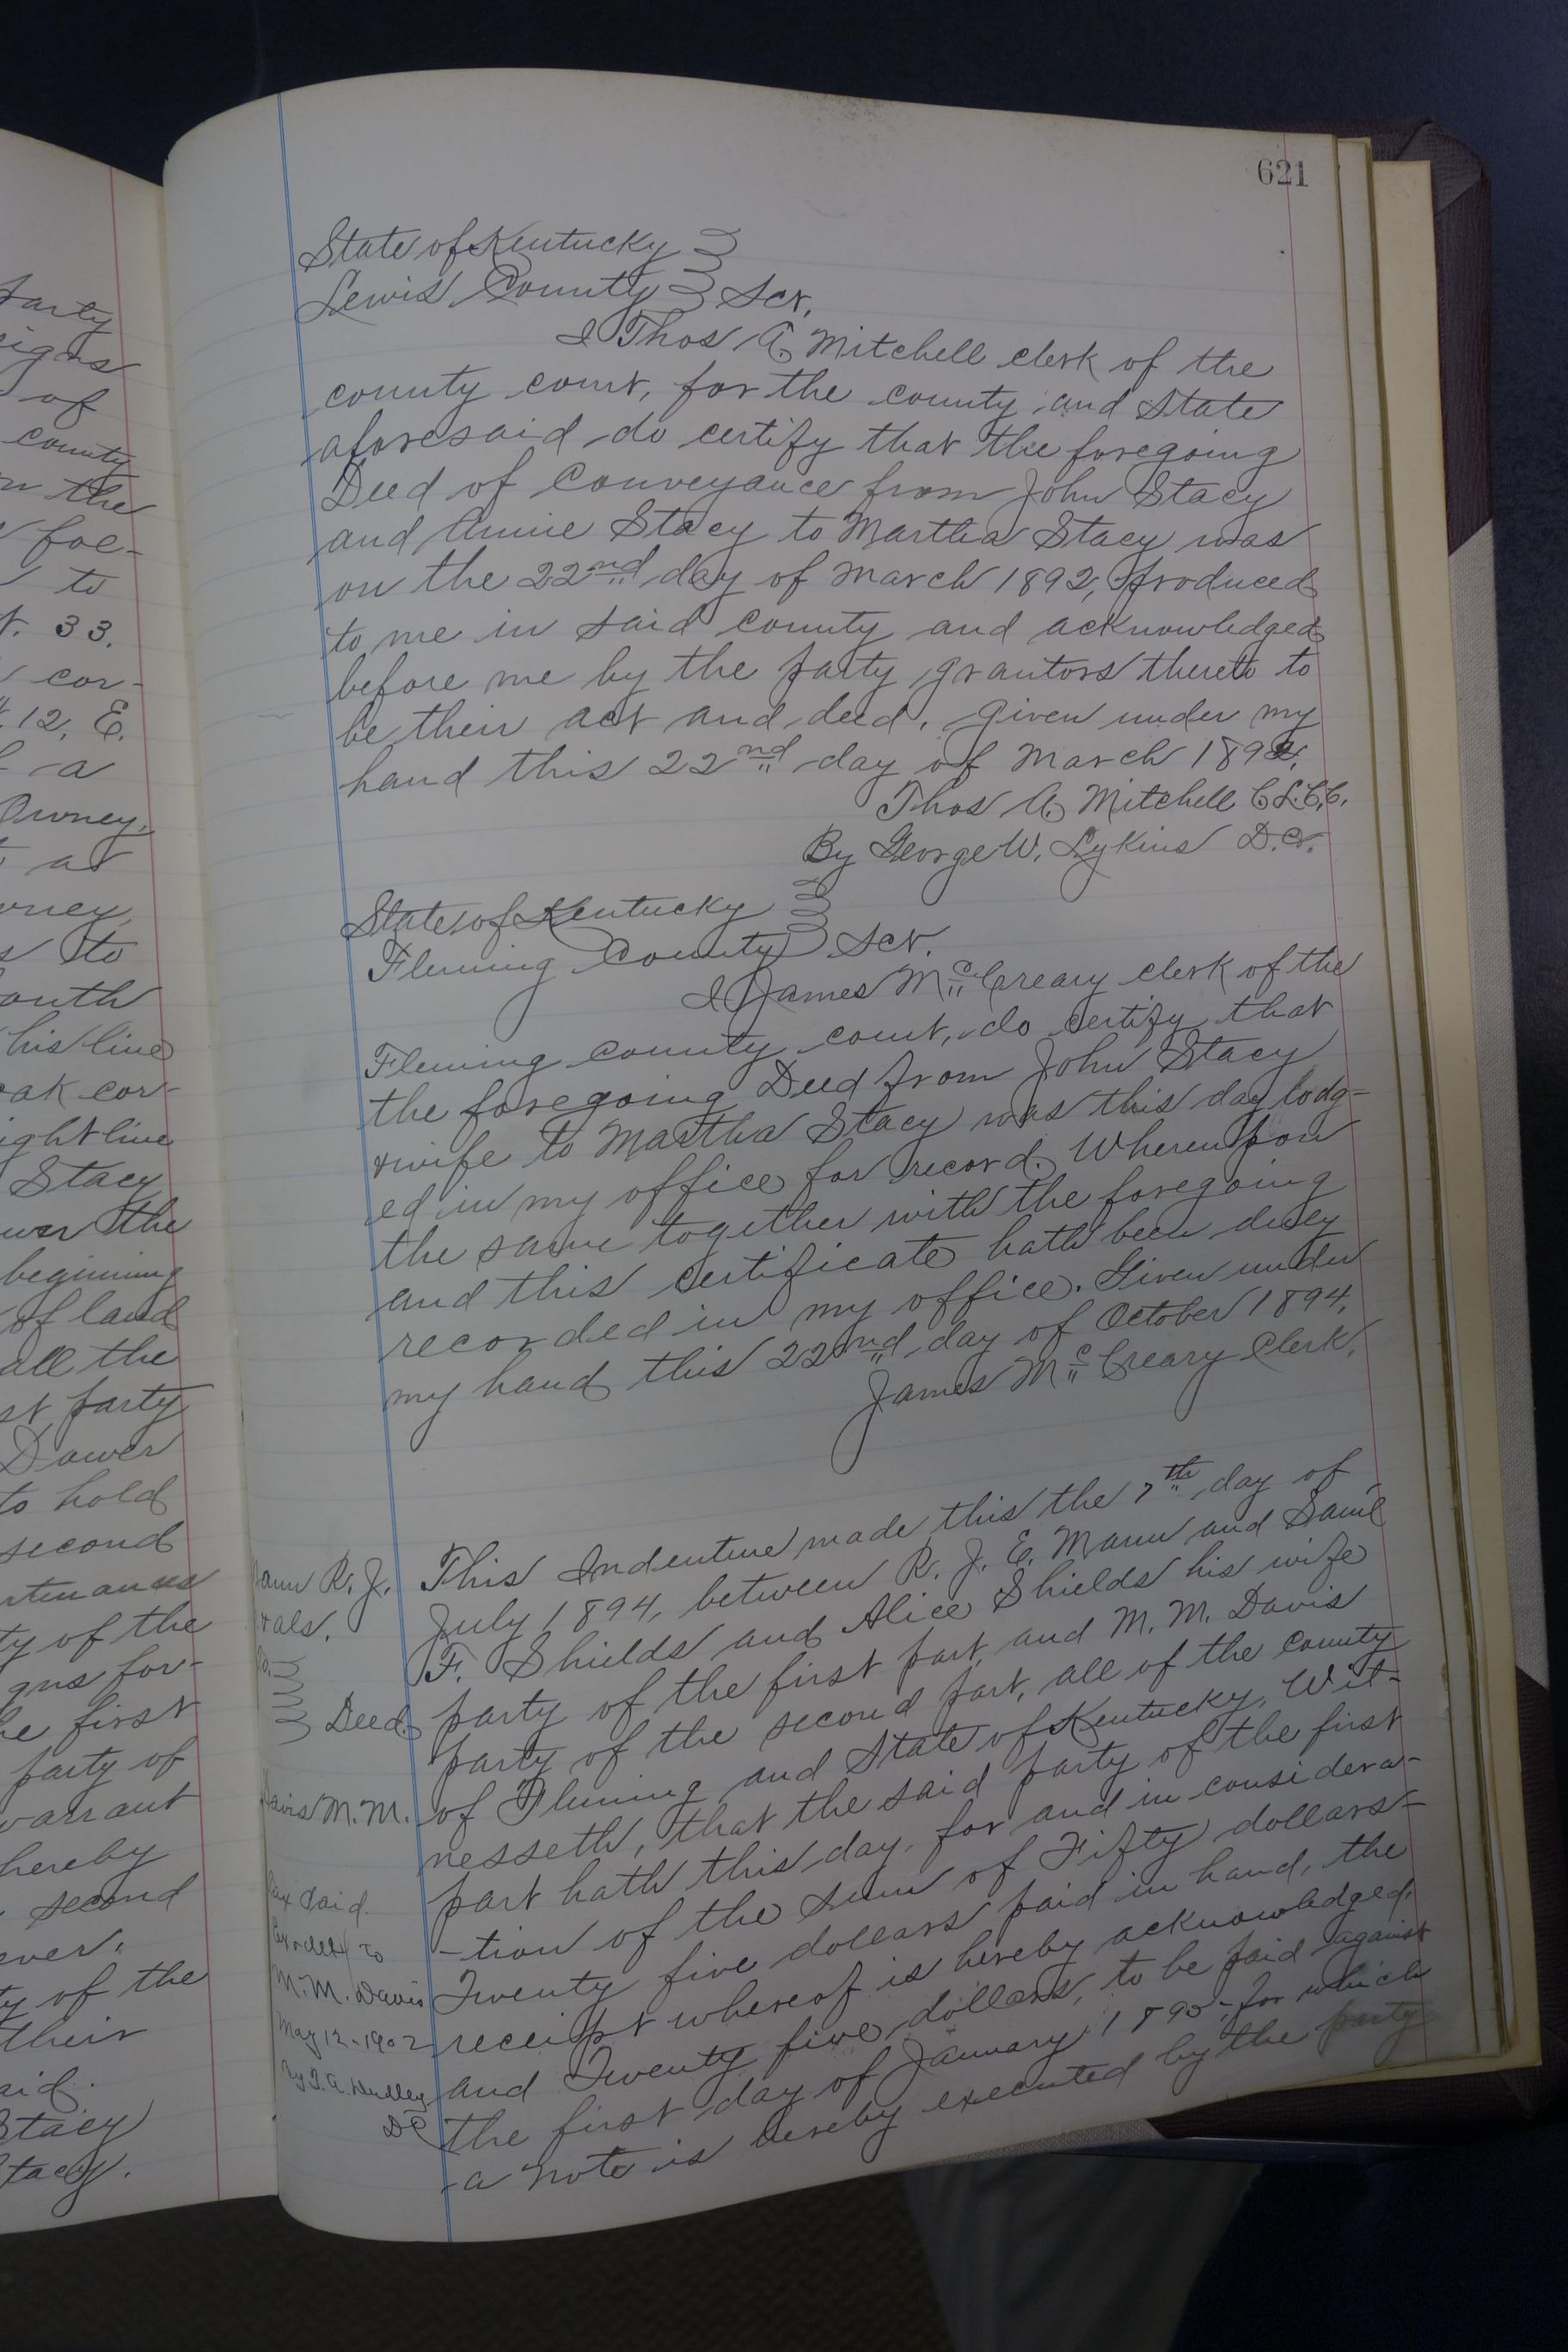 621
State of Kentucky
Lewis County Sct.
I Thos A. Mitchell clerk of the
county court, for the county and State
aforesaid do certify that the foregoing
Deed of Conveyance from John Stacy
and Annie Stacy to Martha Stacy was
on the 22nd day of March 1892, produced
to me in said county and acknowledged
before me by the party grantors thereto to
be their act and deed. Given under my
hand this 22nd day of March 1892.
Thos A. Mitchell C.L.C.C.
By George W. Lykins D.C.
State of Kentucky
Fleming County Sct.
I James McCreary clerk of the
Fleming county court, do certify that
the foregoing Deed from John Stacy
& wife to Martha Stacy was this day lodg-
ed in my office for record. Whereupon
the same together with the foregoing
and this certificate hath been duly
recorded in my office. Given under
my hand this 22nd day of October 1894.
James McCreary Clerk.
Mann R. J.
& als.
To.
Deed
Davis M. M.
Tax Paid.
to
M. M. Davis
May 12-1902
By T. A. Dudley
DC
This Indenture made this the 7th day of
July 1894, between R. J. E. Mann and Saml
F. Shields and Alice Shields his wife
party of the first part, and M. M. Davis
party of the second part, all of the county
of Fleming and State of Kentucky, Wit-
nesseth, that the said party of the first
part hath this day, for and in considera-
-tion of the sum of Fifty dollars-
Twenty five dollars paid in hand, the
receipt whereof is hereby acknowledged.
and Twenty five dollars, to be paid against
the first day of January 1895- for which
a note is hereby executed by the party
party
signs
of
county
on the
foe-
to
33.
cor-
12, E.
a
Owney.
at
to
south
his line
oak cor-
ight line
Stacy
the
beginning
of land
all the
st party
Dower
to hold
second
rtenances
ty of the
gns for-
he first
party of
warrant
hereby
second
ever.
ty of the
their
aid.
Stacy
Stacy.